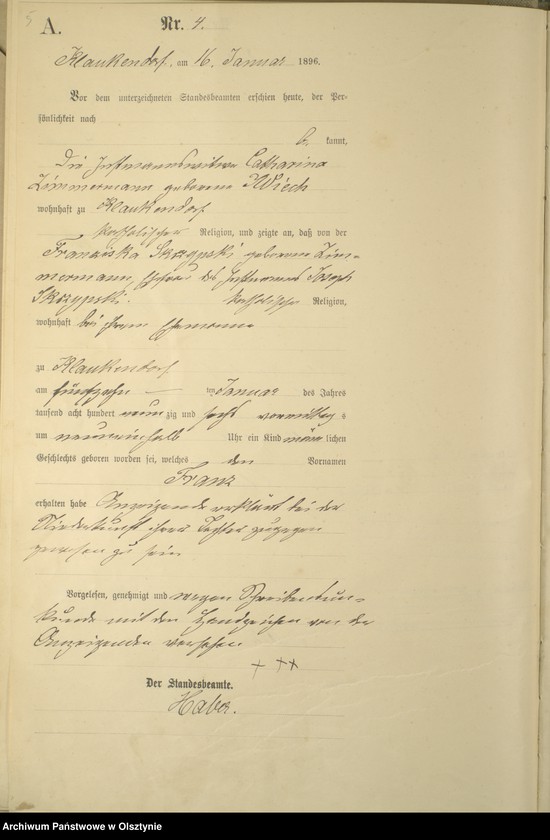 5
A.
Nr. 4.
Klaukendorf, am 16. Januar 1896.
Vor dem unterzeichneten Standesbeamten erschien heute, der Per-
sönlichkeit nach
be kannt,
die Instmannswitwe Catharina
Zimmermann geborene Wiech
wohnhaft zu Klaukendorf
katholischer Religion, und zeigte an, daß von der
Franziska Skrzypski geborenen Zim-
mermann, Ehefrau des Instmanns Joseph
Skrzypski. katholischer Religion,
wohnhaft bei ihrem Ehemanne
zu Klaukendorf
am fünfzehn ten Januar des Jahres
tausend acht hundert neun zig und sechs vormittags
um neuneinhalb Uhr ein Kind männ lichen
Geschlechts geboren worden sei, welches den Vornamen
Franz
erhalten habe Anzeigende erklärt bei der
Niederkunft ihrer Tochter zugegen
gewesen zu sein
Vorgelesen, genehmigt und wegen Schreibensun-
kunde mit den Handzeichen von der
Anzeigenden versehen
+ ++
Der Standesbeamte.
Archiwum Państwowe w Olsztynie